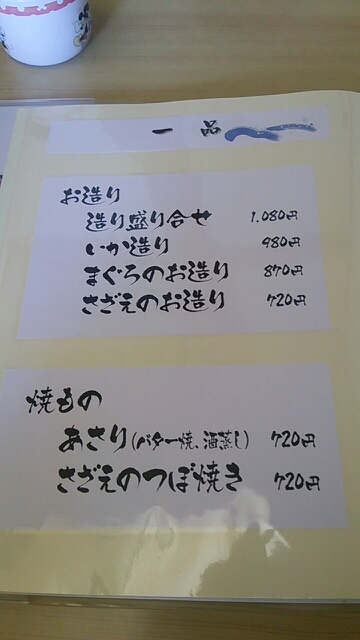 一品
お造り
造り盛り合せ 1.080円
いか造り 980円
まぐろのお造り 870円
さざえのお造り 720円
焼もの
あさり(バター焼、酒蒸し) 720円
さざえのつぼ焼き 720円